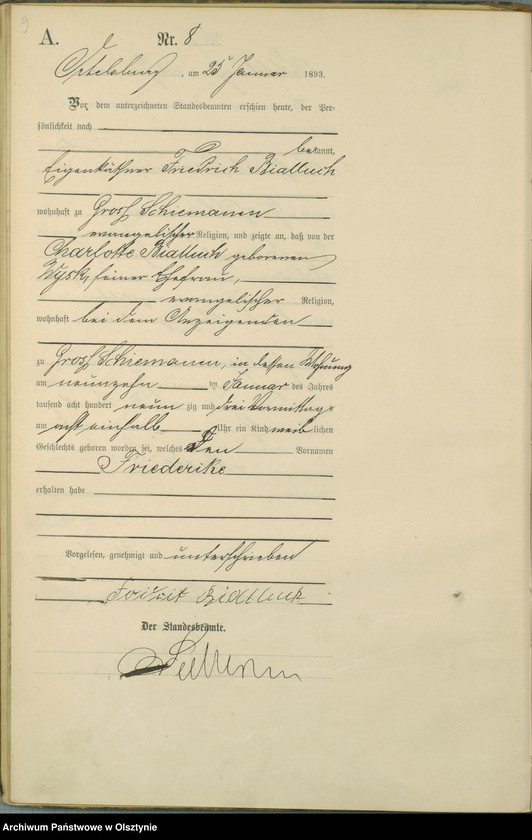 9
A.
Nr. 8
Ortelsburg, am 25 Januar 1893.
Vor dem unterzeichneten Standesbeamten erschien heute, der Per-
sönlichkeit nach
bekannt,
Eigenkäthner Friedrich Bialluch
wohnhaft zu Groß Schiemanen
evangelischer Religion, und zeigte an, daß von der
Charlotte Bialluch geborenen
Wysk, seiner Ehefrau,
evangelischer Religion,
wohnhaft bei dem Anzeigenden
zu Groß Schiemanen, in dessen Wohnung
am neunzehn ten Januar des Jahres
tausend acht hundert neun zig und drei Vormittags
um acht einhalb Uhr ein Kind weiblichen
Geschlechts geboren worden sei, welches den Vornamen
Friederike
erhalten habe
Vorgelesen, genehmigt und unterschrieben
Bialluch
Der Standesbeamte.
Archiwum Państwowe w Olsztynie